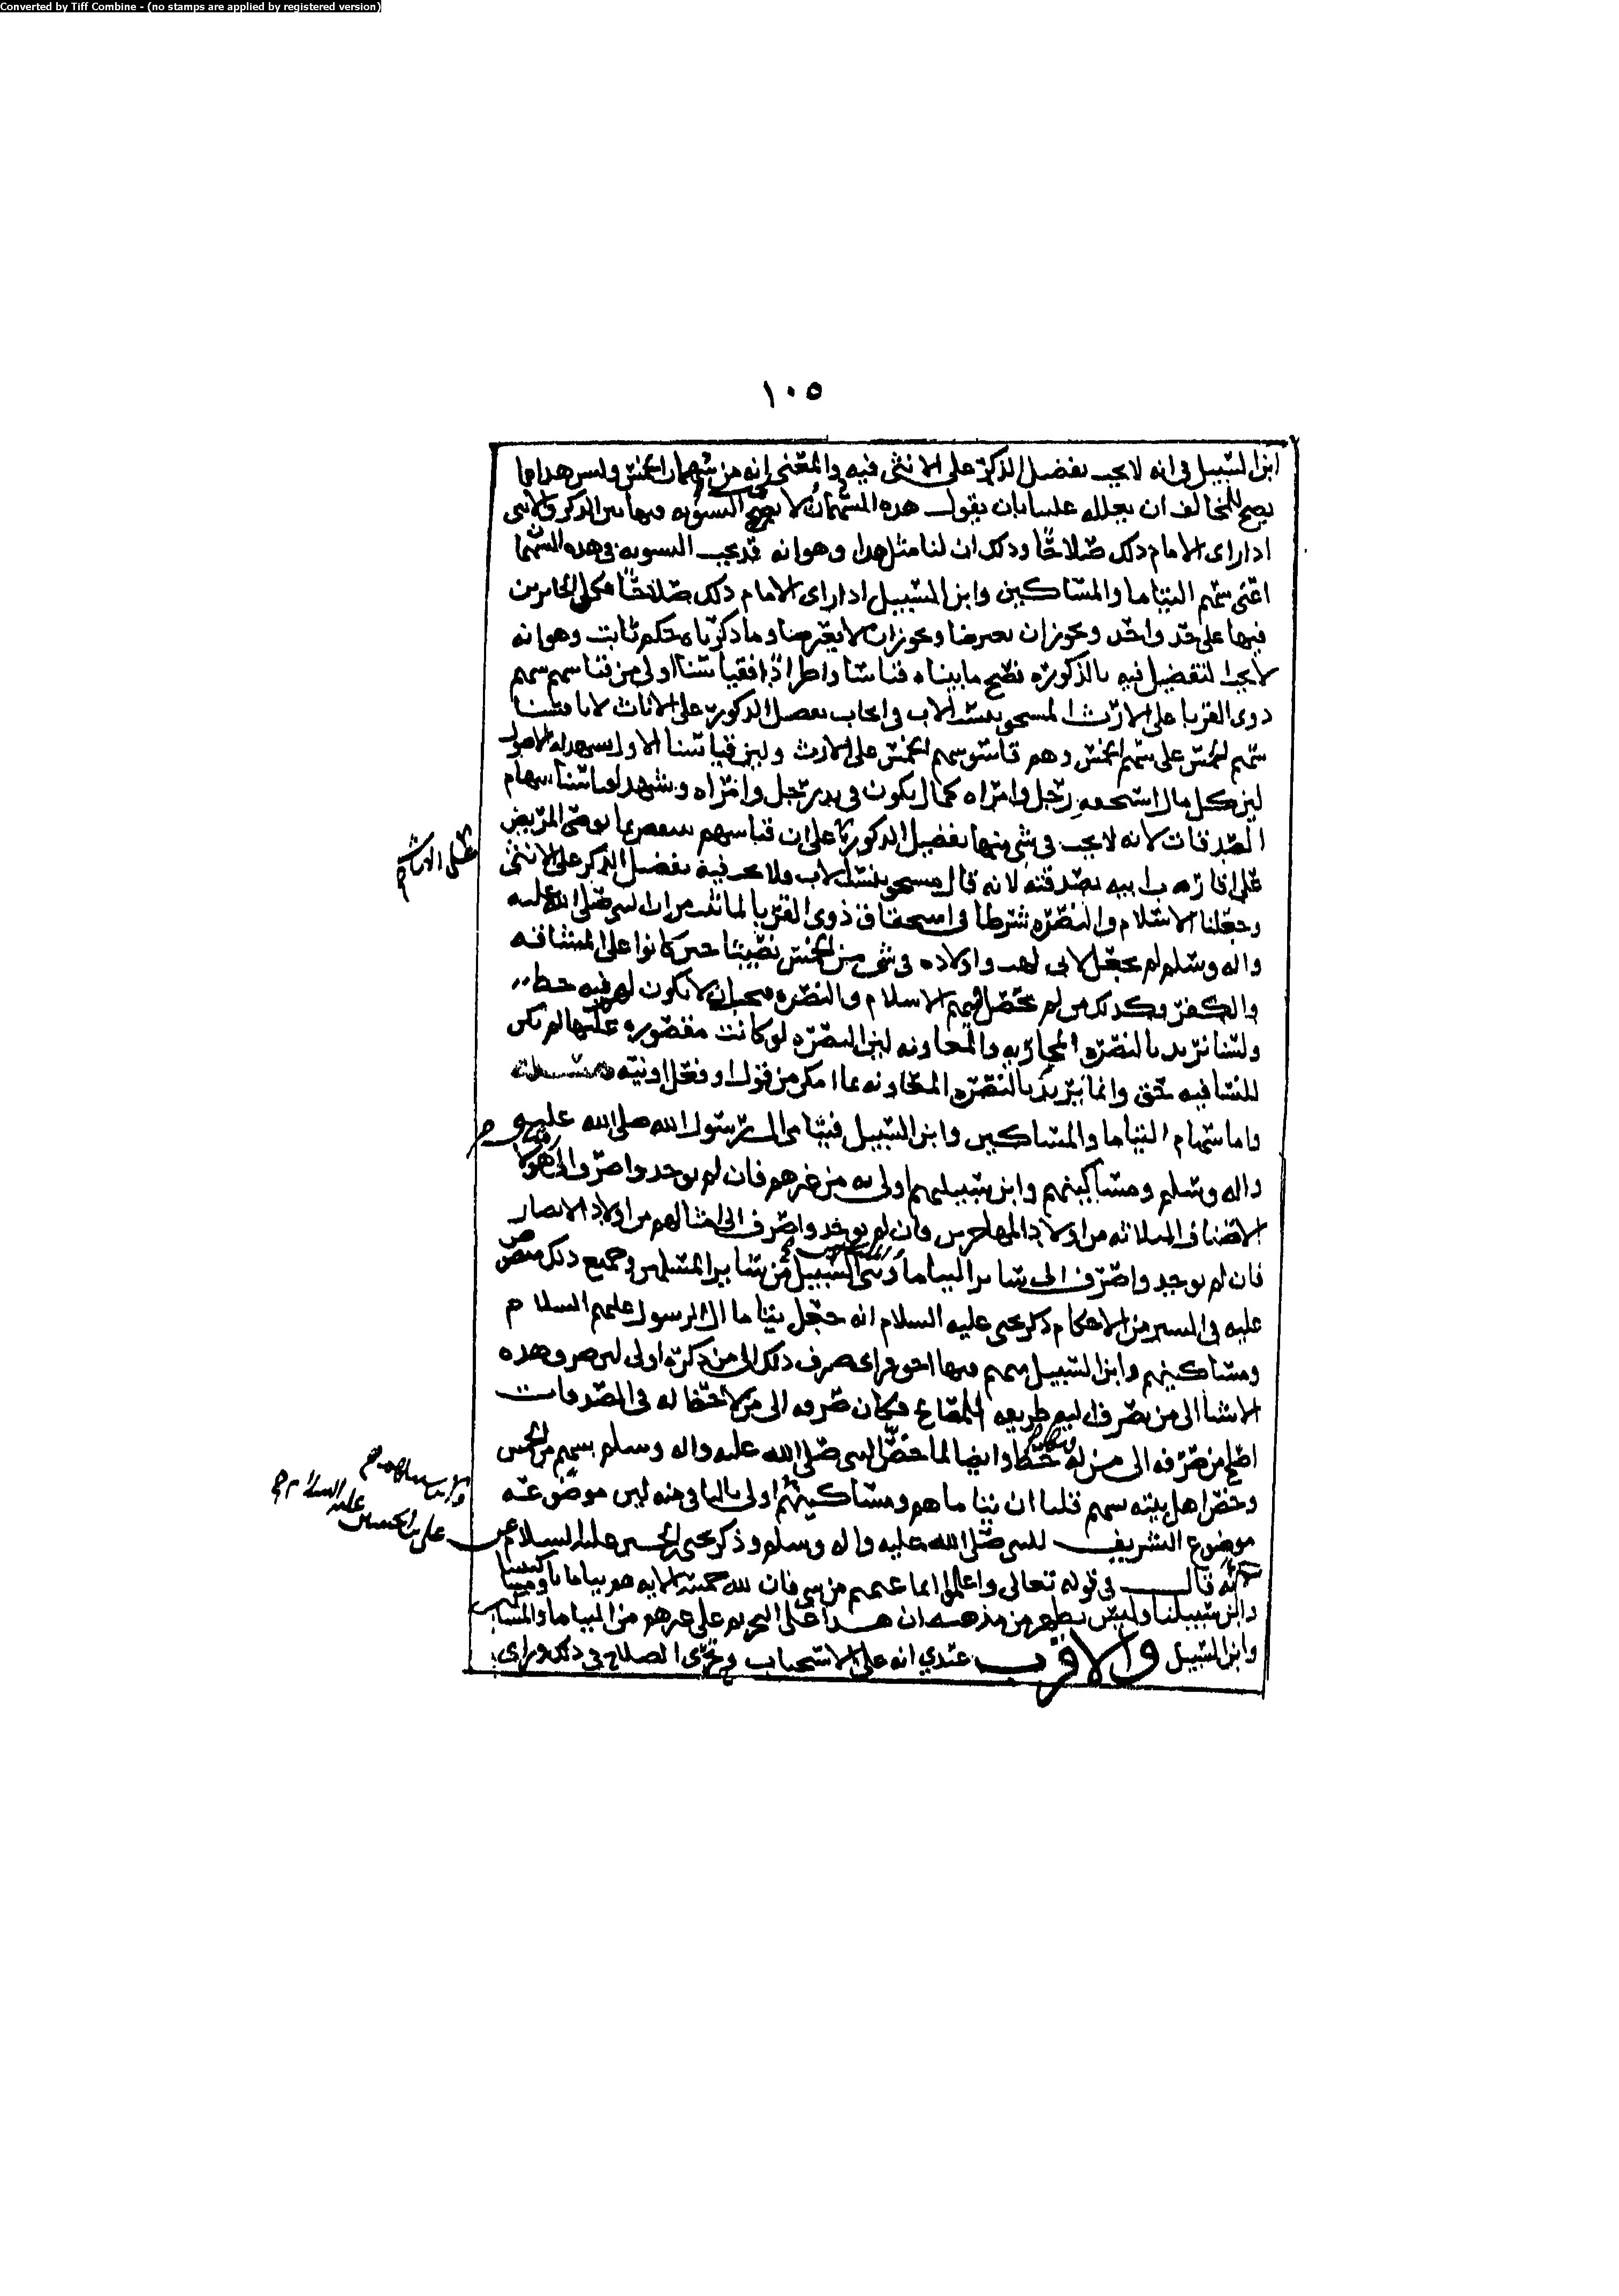 Converted by Tiff Combine - (no stamps are applied by registered version)
١٠٥
ابن السبيل في انه لا يجب تفضيل الذكر على الانثى فيه والمعنى انه من سهمان الخمس وليس هذا مما
يصح للمخالف ان يعلله علينا بان يقول هذه السهمان لا يجب التسويه فيها بين الذكر والانثى
اذا راى الامام ذلك صلاحًا وذلك ان لنا مثل هذا وهو انه قد يجب التسويه في هذه السهمان
اعني سهم اليتاما والمساكين وابن السبيل اذا راى الامام ذلك صلاحًا فكلى الجائزين
فيها على حد واحد ويجوز ان يعرضا ويجوز ان لا يعرضا وما ذكرناه حكم ثابت وهو انه
لا يجب التفضيل فيه بالذكوره فصح ما بيناه قياسًا واطرادًا فقياسنا اولى من قياسهم سهم
ذوى القربا على الارث المستحق بنسب الاب في ايجاب تفضيل الذكوره على الاناث لانا قسنا
سهم الخمس على سهم الخمس وهم قاسوا سهم الخمس على الارث وليس قياسنا الاول يشهد له الاصول
لين كل مال استحقه رجل وامراه كمال يكون في يد رجل وامراه ويشهد لقياسنا سهام
الصدقات لانه لا يجب في شي منها تفضيل الذكور على الاناث على ان قياسهم ينتقض بما يوصى المريض
على اقاربه بابيه بصدقته لانه قال مستحق بنسب الاب ولا يجب فيه تفضيل الذكر على الانثى
وجعلنا الاسلام والنصره شرطا في استحقاق ذوى القربا لما ثبت من ان النبي صلى الله عليه
واله وسلم لم يجعل لابي لهب واولاده في شي من الخمس نصيبًا حين كانوا على المشاقه
والكفر وكذلك من لم يحصل فيهم الاسلام والنصره فيجب ان لا يكون لهم فيه حظ
ولسنا نريد بالنصره المحاربه والمعاونه لين النصره لو كانت مقصوره عليها لم يكن
للنسا فيه حق وانما نريد بالنصره المعاونه بما امكن من قول او فعل او نيه مسئله
واما سهام اليتاما والمساكين وابن السبيل فيتامى ال رسول الله صلى الله عليه
واله وسلم ومساكينهم وابن سبيلهم اولى به من غيرهم فان لم يوجدوا صرف الى هولا
الاصناف الثلاثه من اولاد المهاجرين فان لم يوجدوا صرف الى امثالهم من اولاد الانصار
فان لم يوجدوا صرف الى سائر اليتاما والمساكين وبني السبيل من سائر المسلمين وجميع ذلك منصوص
عليه في السير من الاحكام ذكر يحيى عليه السلام انه جعل يتاما ال الرسول عليهم السلام
ومساكينهم وابن السبيل منهم فيها احق وراى صرف ذلك الى من ذكره اولى لين صرف هذه
الاشيا الى من يصرف اليه طريقه المصالح فكان صرفه الى من لا حظ له في الصدقات
اصلح من صرفه الى من له فيها حظ وايضا لما خص النبي صلى الله عليه واله وسلم بسهم من الخمس
وخص اهل بيته بسهم قلنا ان يتاماهم ومساكينهم اولى بالباقي منه لين موضوعه
موضوع التشريف للنبي صلى الله عليه واله وسلم وذكر يحيى بن الحسين عليه السلام عن علي بن الحسين عليه السلام
انه قال في قوله تعالى واعلموا انما غنمتم من شي فان لله خمسه الايه هم يتامانا ومساكيننا
وابن سبيلنا وليس يظهر من مذهبه ان هذا على التحريم على غيرهم من اليتاما والمساكين
وابن السبيل والاقرب عندي انه على الاستحباب وتحري الصلاح في ذلك وراى